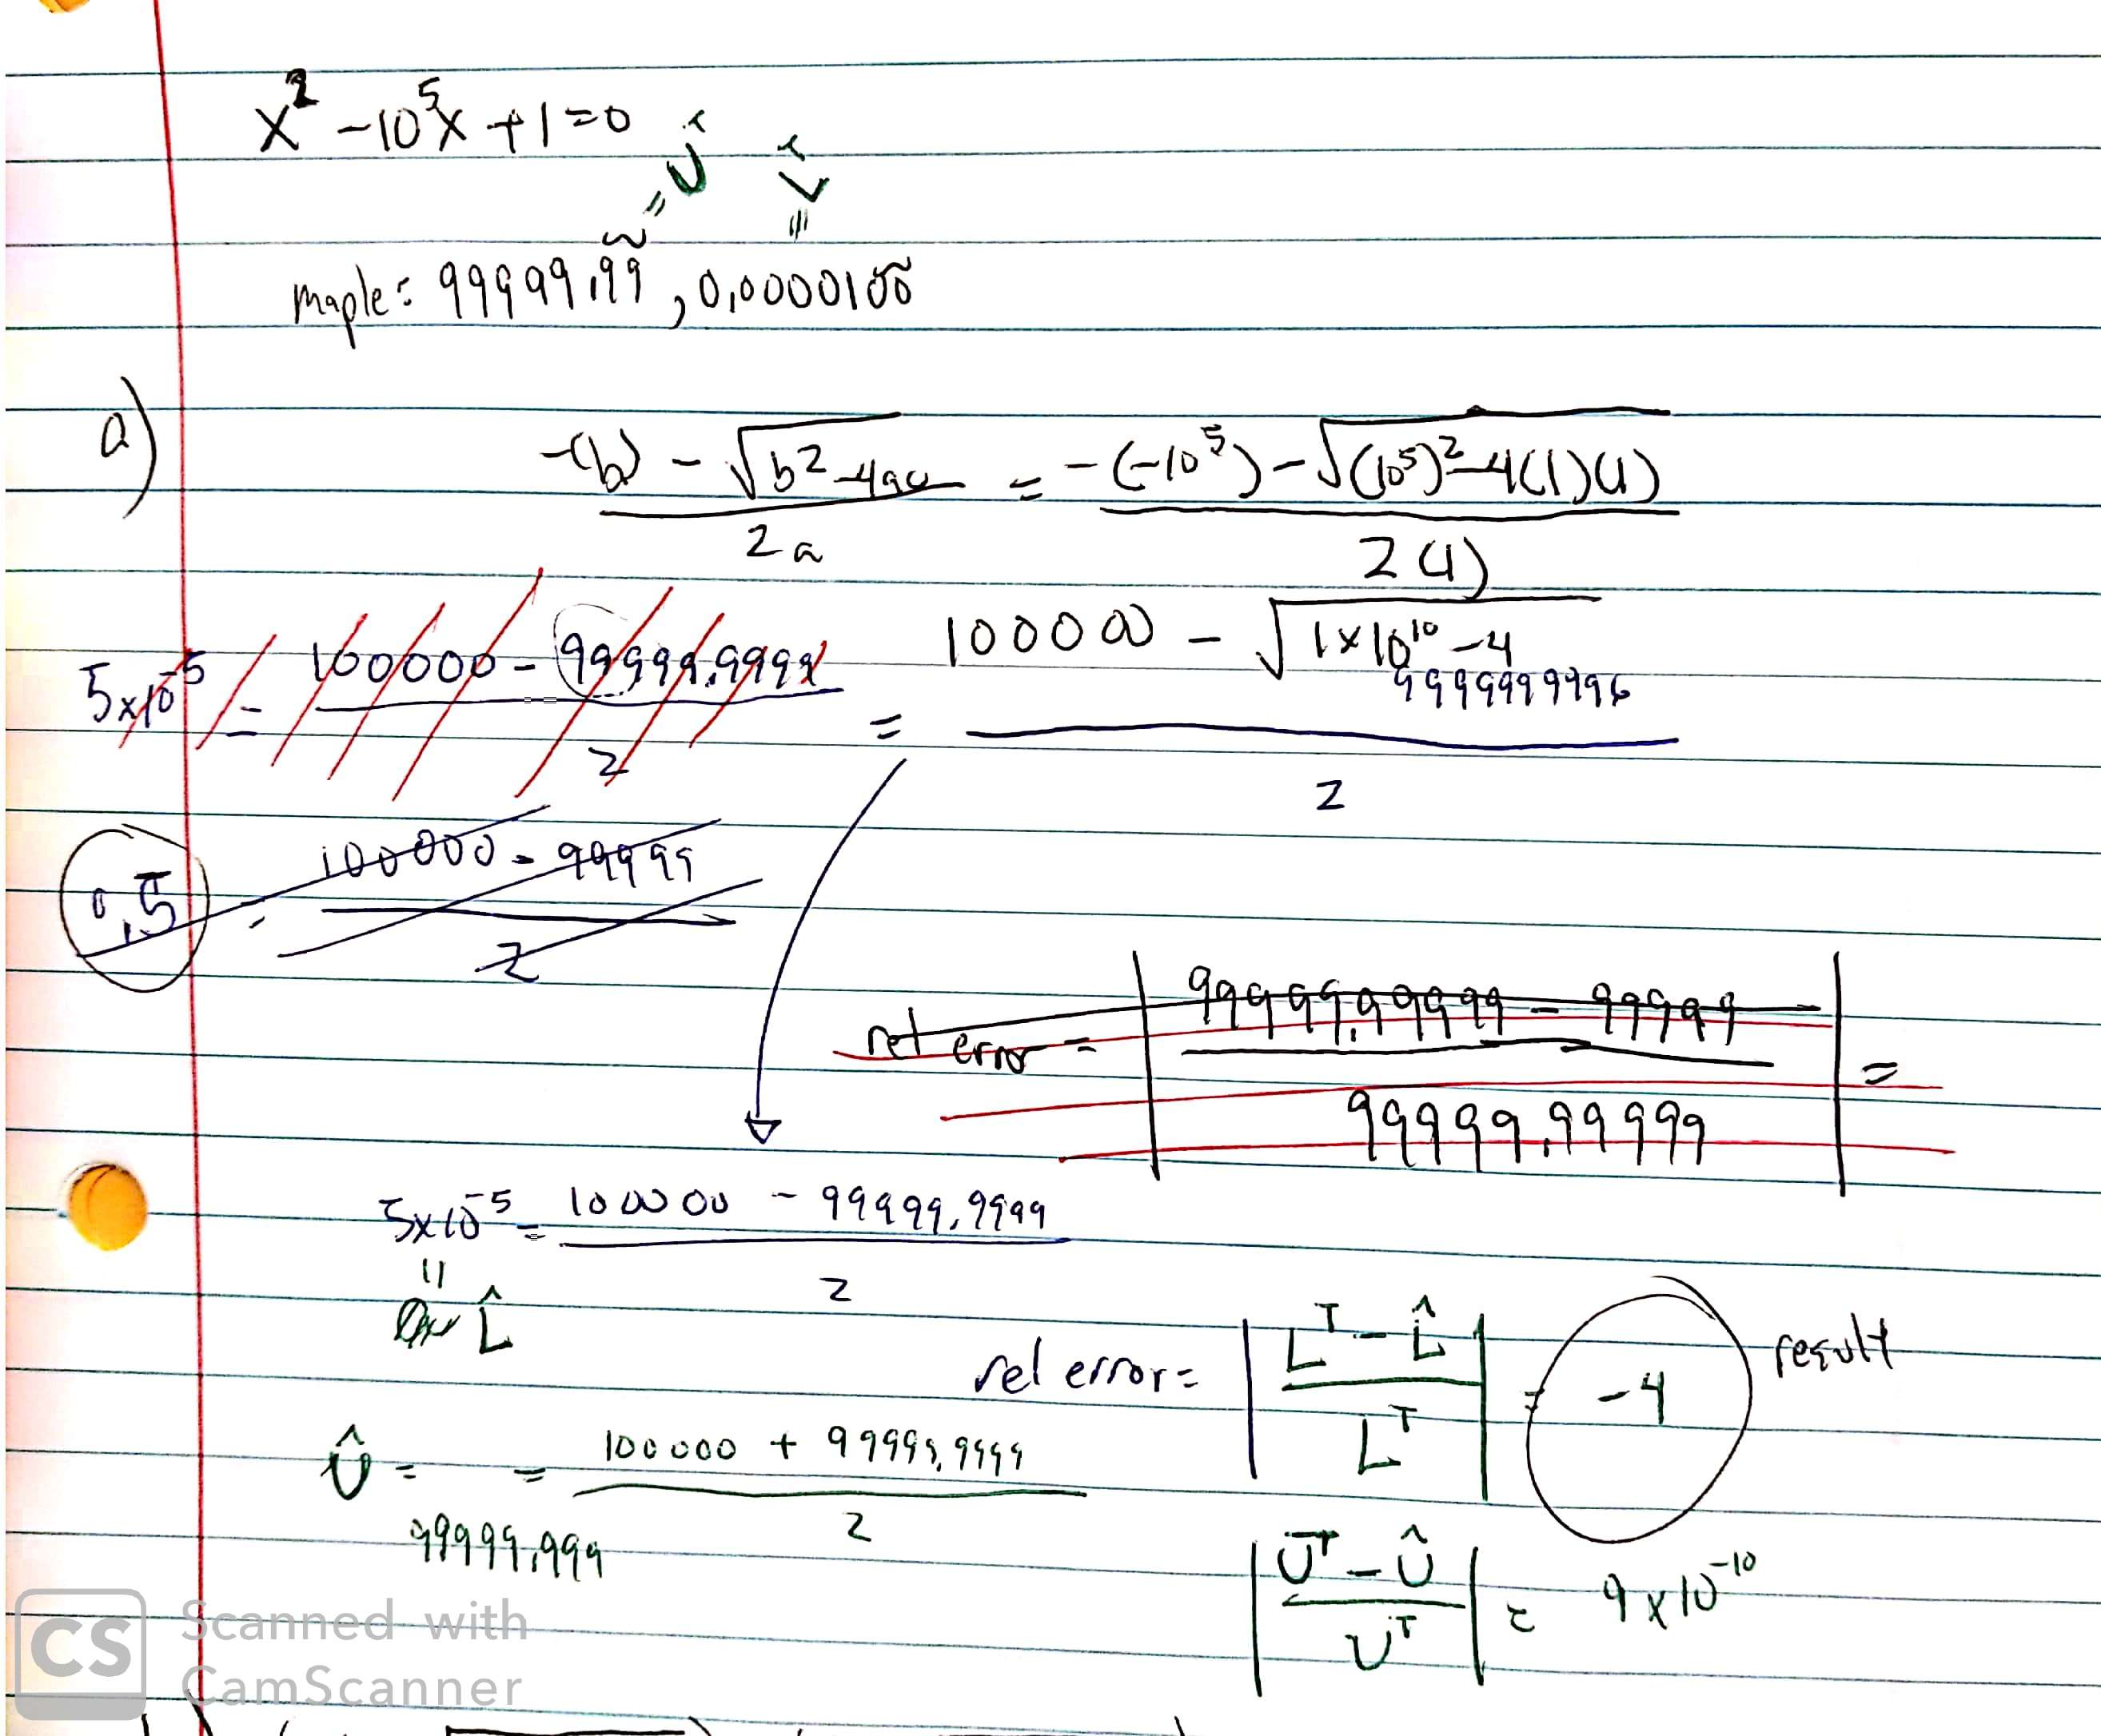 x² - 10⁵x + 1 = 0
= Û
maple: 99999,99, 0,0000100
a)
-(b) - √b² - 4ac / 2a = -(-10⁵) - √(10⁵)² - 4(1)(1) / 2(1)
5x10⁻⁵ = 100000 - 99999,9999 / 2 = 100000 - √1x10¹⁰ - 4 / 2
9999999996
0,5 = 100000 - 99999 / 2
rel error = | 99999,99999 - 99999 / 99999,99999 | =
5x10⁻⁵ = 100000 - 99999,9999 / 2
= L̂
rel error = | Lᵀ - L̂ / Lᵀ | = -4 result
Û = = 100000 + 99999,9999 / 2
99999,999
| Uᵀ - Û / Uᵀ | = 9x10⁻¹⁰
CS Scanned with
CamScanner